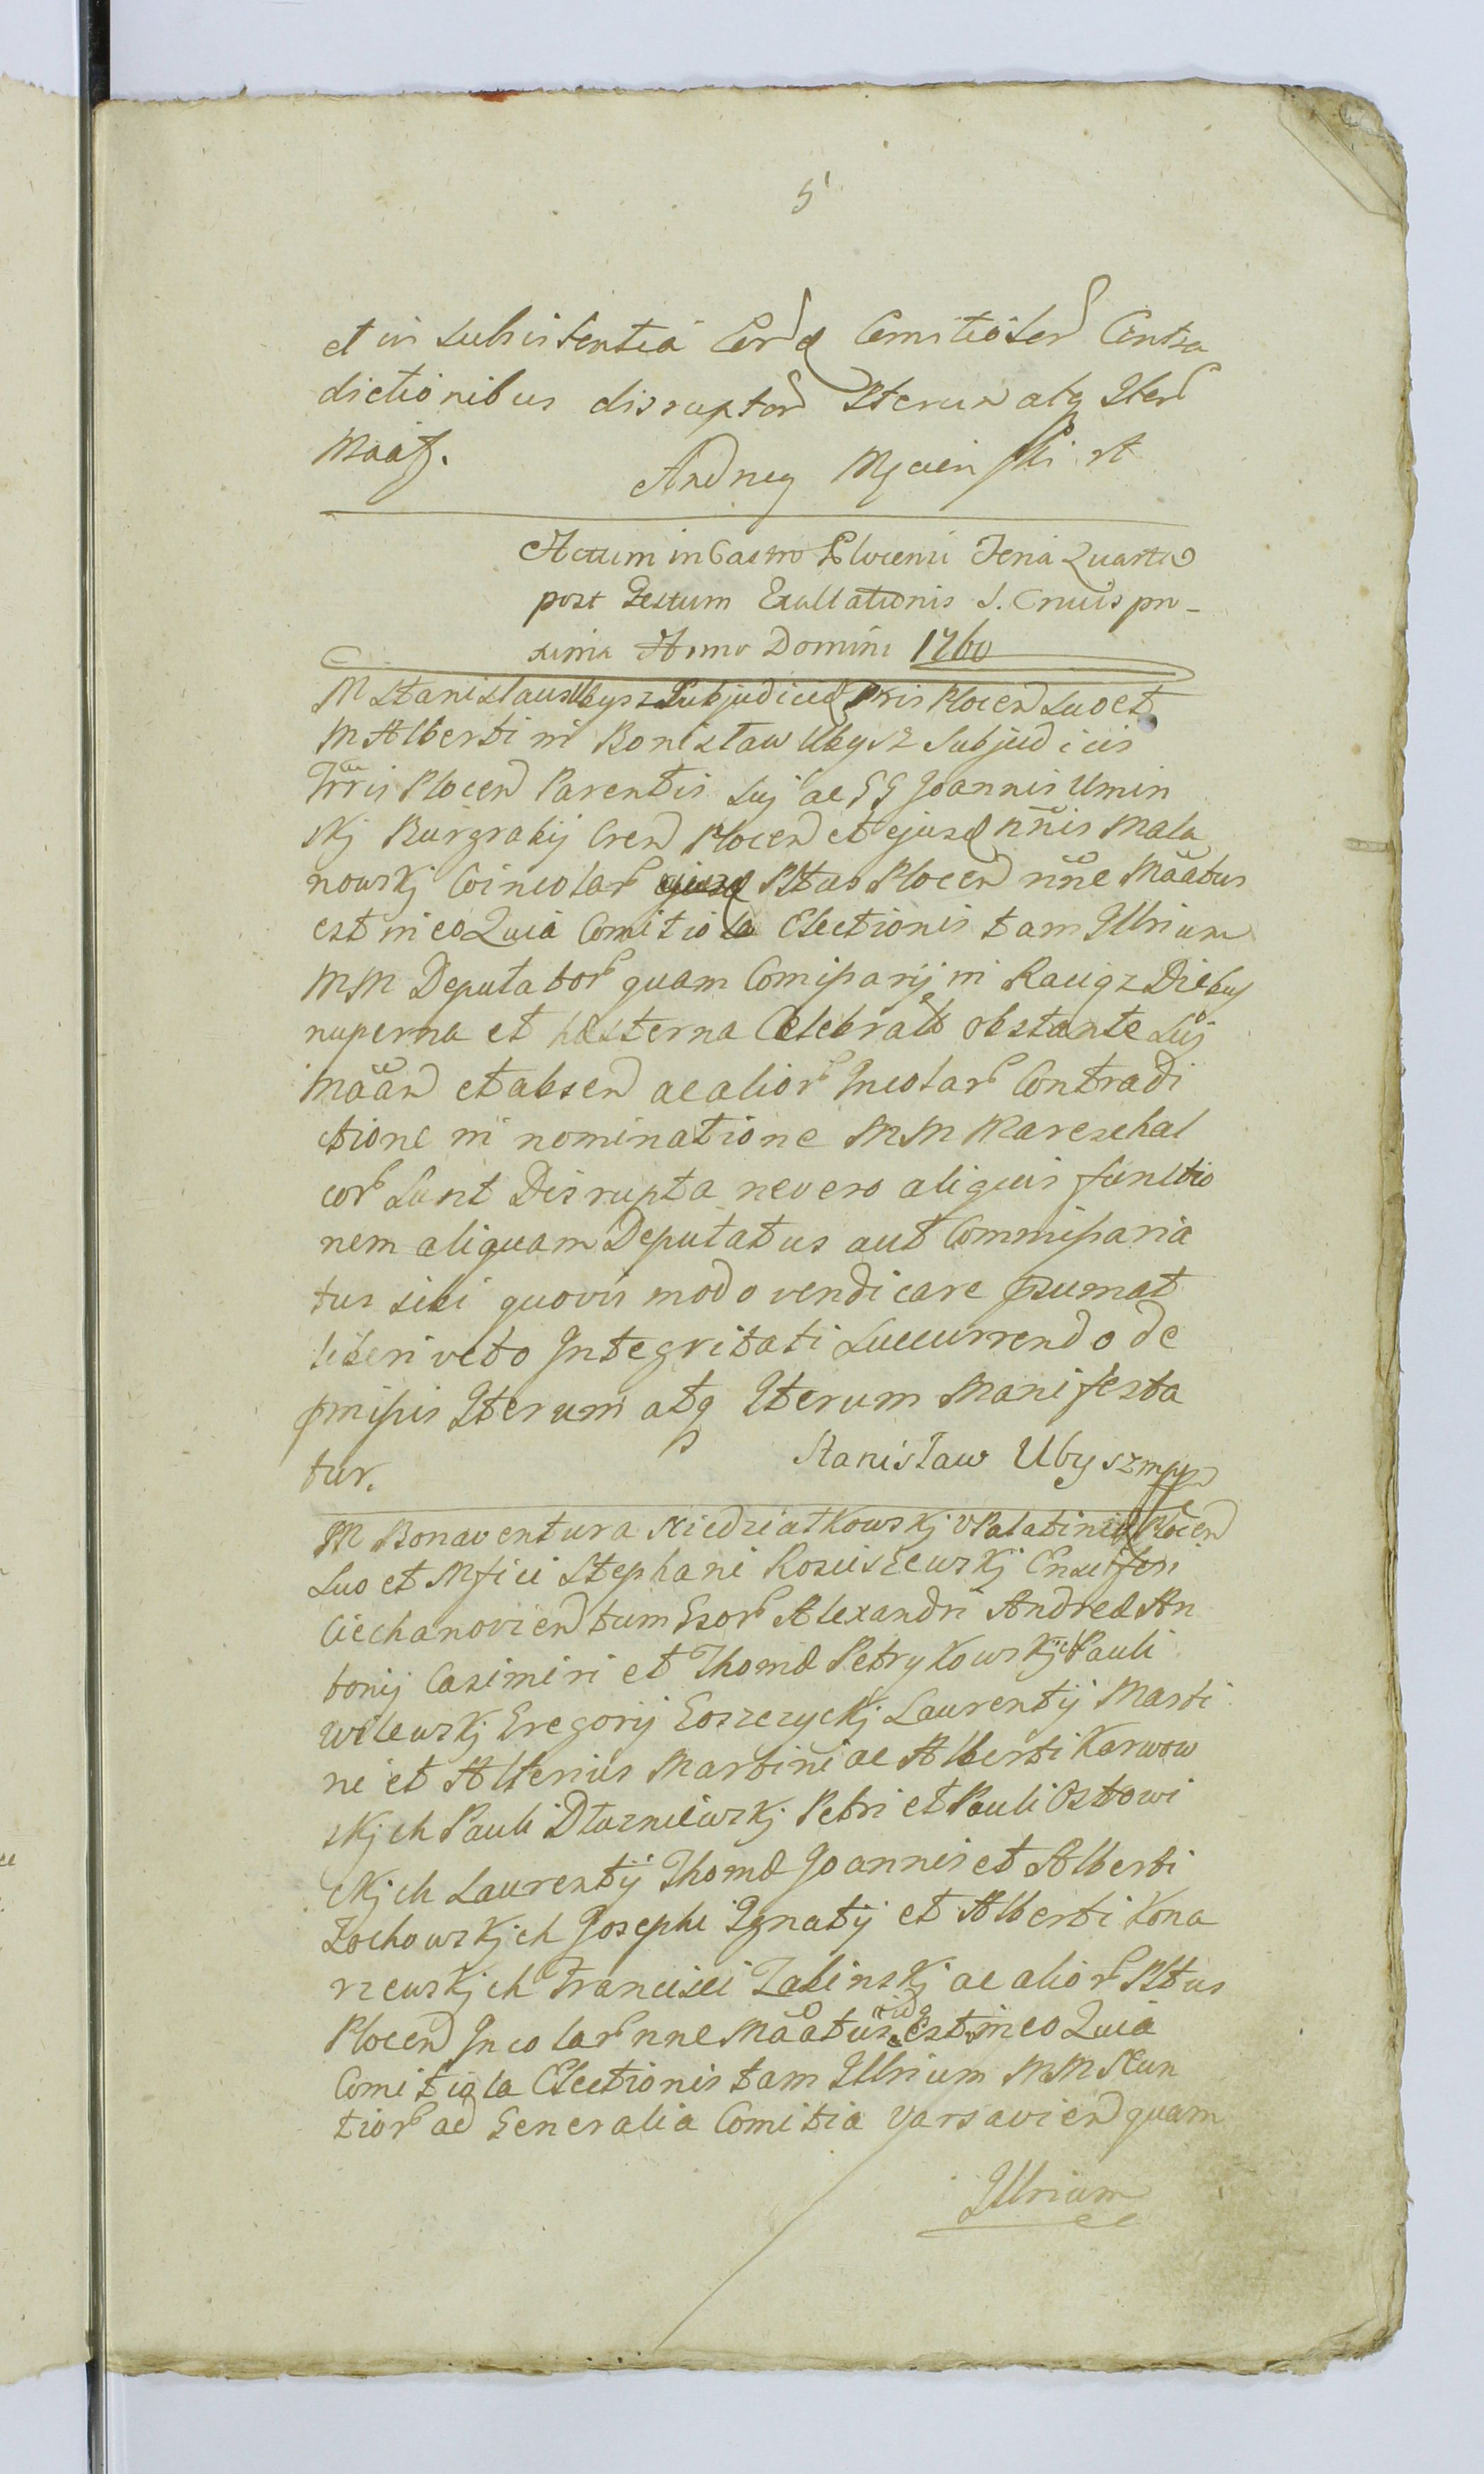 5
et in subsistentia Eord Comitiolor Contra
dictionibus disruptor Iterum atq Iter
Maatf.
Andrzey Mycien ski rt
Actum in Castro Plocensi Feria Quarta
post Festum Exaltationis S. Crucis pro-
xima Anno Domini 1760
M Stanislaus Ubysz Subjudiced Tris Plocen suo et
M Alberti in Bonislaw Ubysz Subjudicis
Trris Plocen Parentis sui ac GG Joannis Umin
skj Burgrabij Cren Plocen et ejusd nnis Mala
nowskj Coincolar Pltas Plocen nne Maatus
est in eo Quia Comitiola Electionis tam Illrium
MM Deputator quam Comissarij in Raciąz Diebus
nuperna et hesterna Celebrata obstante sui
Maan et absen ac alior Incolar Contradi
ctione in nominatione MM Mareschal
cor sunt Disrupta ne vero aliquis functio
nem aliquam Deputatus aut Commissaria
tus sibi quovis modo vendicare psumat
liberi veto Integritati succurrendo de
pmissis Iterum atq Iterum Manifesta
tur.
Stanisław Ubysz mpp
M Bonaventura Niedziałkowskj VPalatined Plocen
suo et Mfici Stephani Rosciszewskj Ensiferi
Ciechanovien tum Gsor Alexandri Andreæ An
tonij Casimiri et Thomæ Petrykowskjch Pauli
Wilewskj Gregorij Goszczyckj Laurentij Marti
ni et Alterius Martini ac Alberti Karwow
skjch Pauli Dłuzniewskj Petri et Pauli Ostrowi
ckjch Laurentij Thomæ Joannis et Alberti
Zochowskjch Josephi Ignatij et Alberti Kona
rzewskjch Francisci Zabinskj ac alior Pltus
Plocen Incolar nne Maatus est in eo Quia
Comitiola Electionis tam Illrium MM Nun
tior ad Generalia Comitia Varsavien quam
Illrium